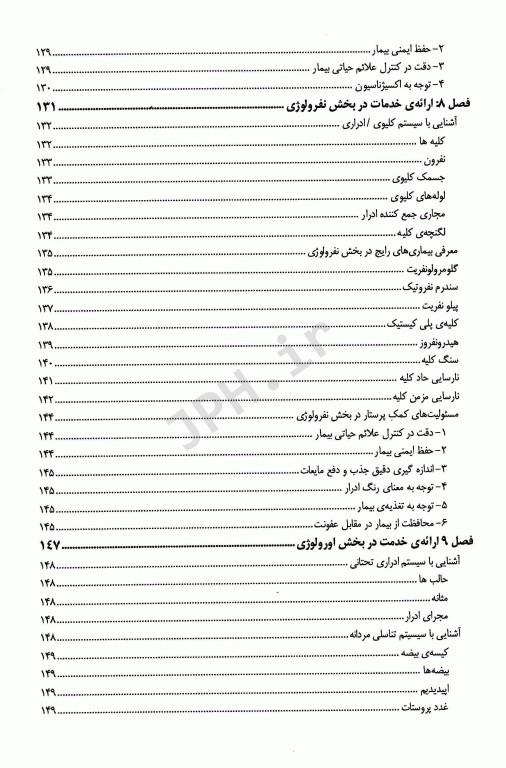 ۲- حفظ ایمنی بیمار ........ ۱۲۹
۳- دقت در کنترل علائم حیاتی بیمار ........ ۱۲۹
۴- توجه به اکسیژناسیون ........ ۱۳۰
فصل ۸: ارائه‌ی خدمات در بخش نفرولوژی ........ ۱۳۱
آشنایی با سیستم کلیوی / ادراری ........ ۱۳۲
کلیه ها ........ ۱۳۲
نفرون ........ ۱۳۳
جسمک کلیوی ........ ۱۳۳
لوله‌های کلیوی ........ ۱۳۴
مجاری جمع کننده ادرار ........ ۱۳۴
لگنچه‌ی کلیه ........ ۱۳۴
معرفی بیماری‌های رایج در بخش نفرولوژی ........ ۱۳۵
گلومرولونفریت ........ ۱۳۵
سندرم نفروتیک ........ ۱۳۶
پیلو نفریت ........ ۱۳۷
کلیه‌ی پلی کیستیک ........ ۱۳۸
هیدرونفروز ........ ۱۳۹
سنگ کلیه ........ ۱۴۰
نارسایی حاد کلیه ........ ۱۴۱
نارسایی مزمن کلیه ........ ۱۴۲
مسئولیت‌های کمک پرستار در بخش نفرولوژی ........ ۱۴۴
۱- دقت در کنترل علائم حیاتی بیمار ........ ۱۴۴
۲- حفظ ایمنی بیمار ........ ۱۴۴
۳- اندازه گیری دقیق جذب و دفع مایعات ........ ۱۴۵
۴- توجه به معنای رنگ ادرار ........ ۱۴۵
۵- توجه به تغذیه‌ی بیمار ........ ۱۴۵
۶- محافظت از بیمار در مقابل عفونت ........ ۱۴۵
فصل ۹ ارائه‌ی خدمت در بخش اورولوژی ........ ۱۴۷
آشنایی با سیستم ادراری تحتانی ........ ۱۴۸
حالب ها ........ ۱۴۸
مثانه ........ ۱۴۸
مجرای ادرار ........ ۱۴۸
آشنایی با سیسیتم تناسلی مردانه ........ ۱۴۸
کیسه‌ی بیضه ........ ۱۴۹
بیضه‌ها ........ ۱۴۹
اپیدیدیم ........ ۱۴۹
غدد پروستات ........ ۱۴۹
JPH.ir